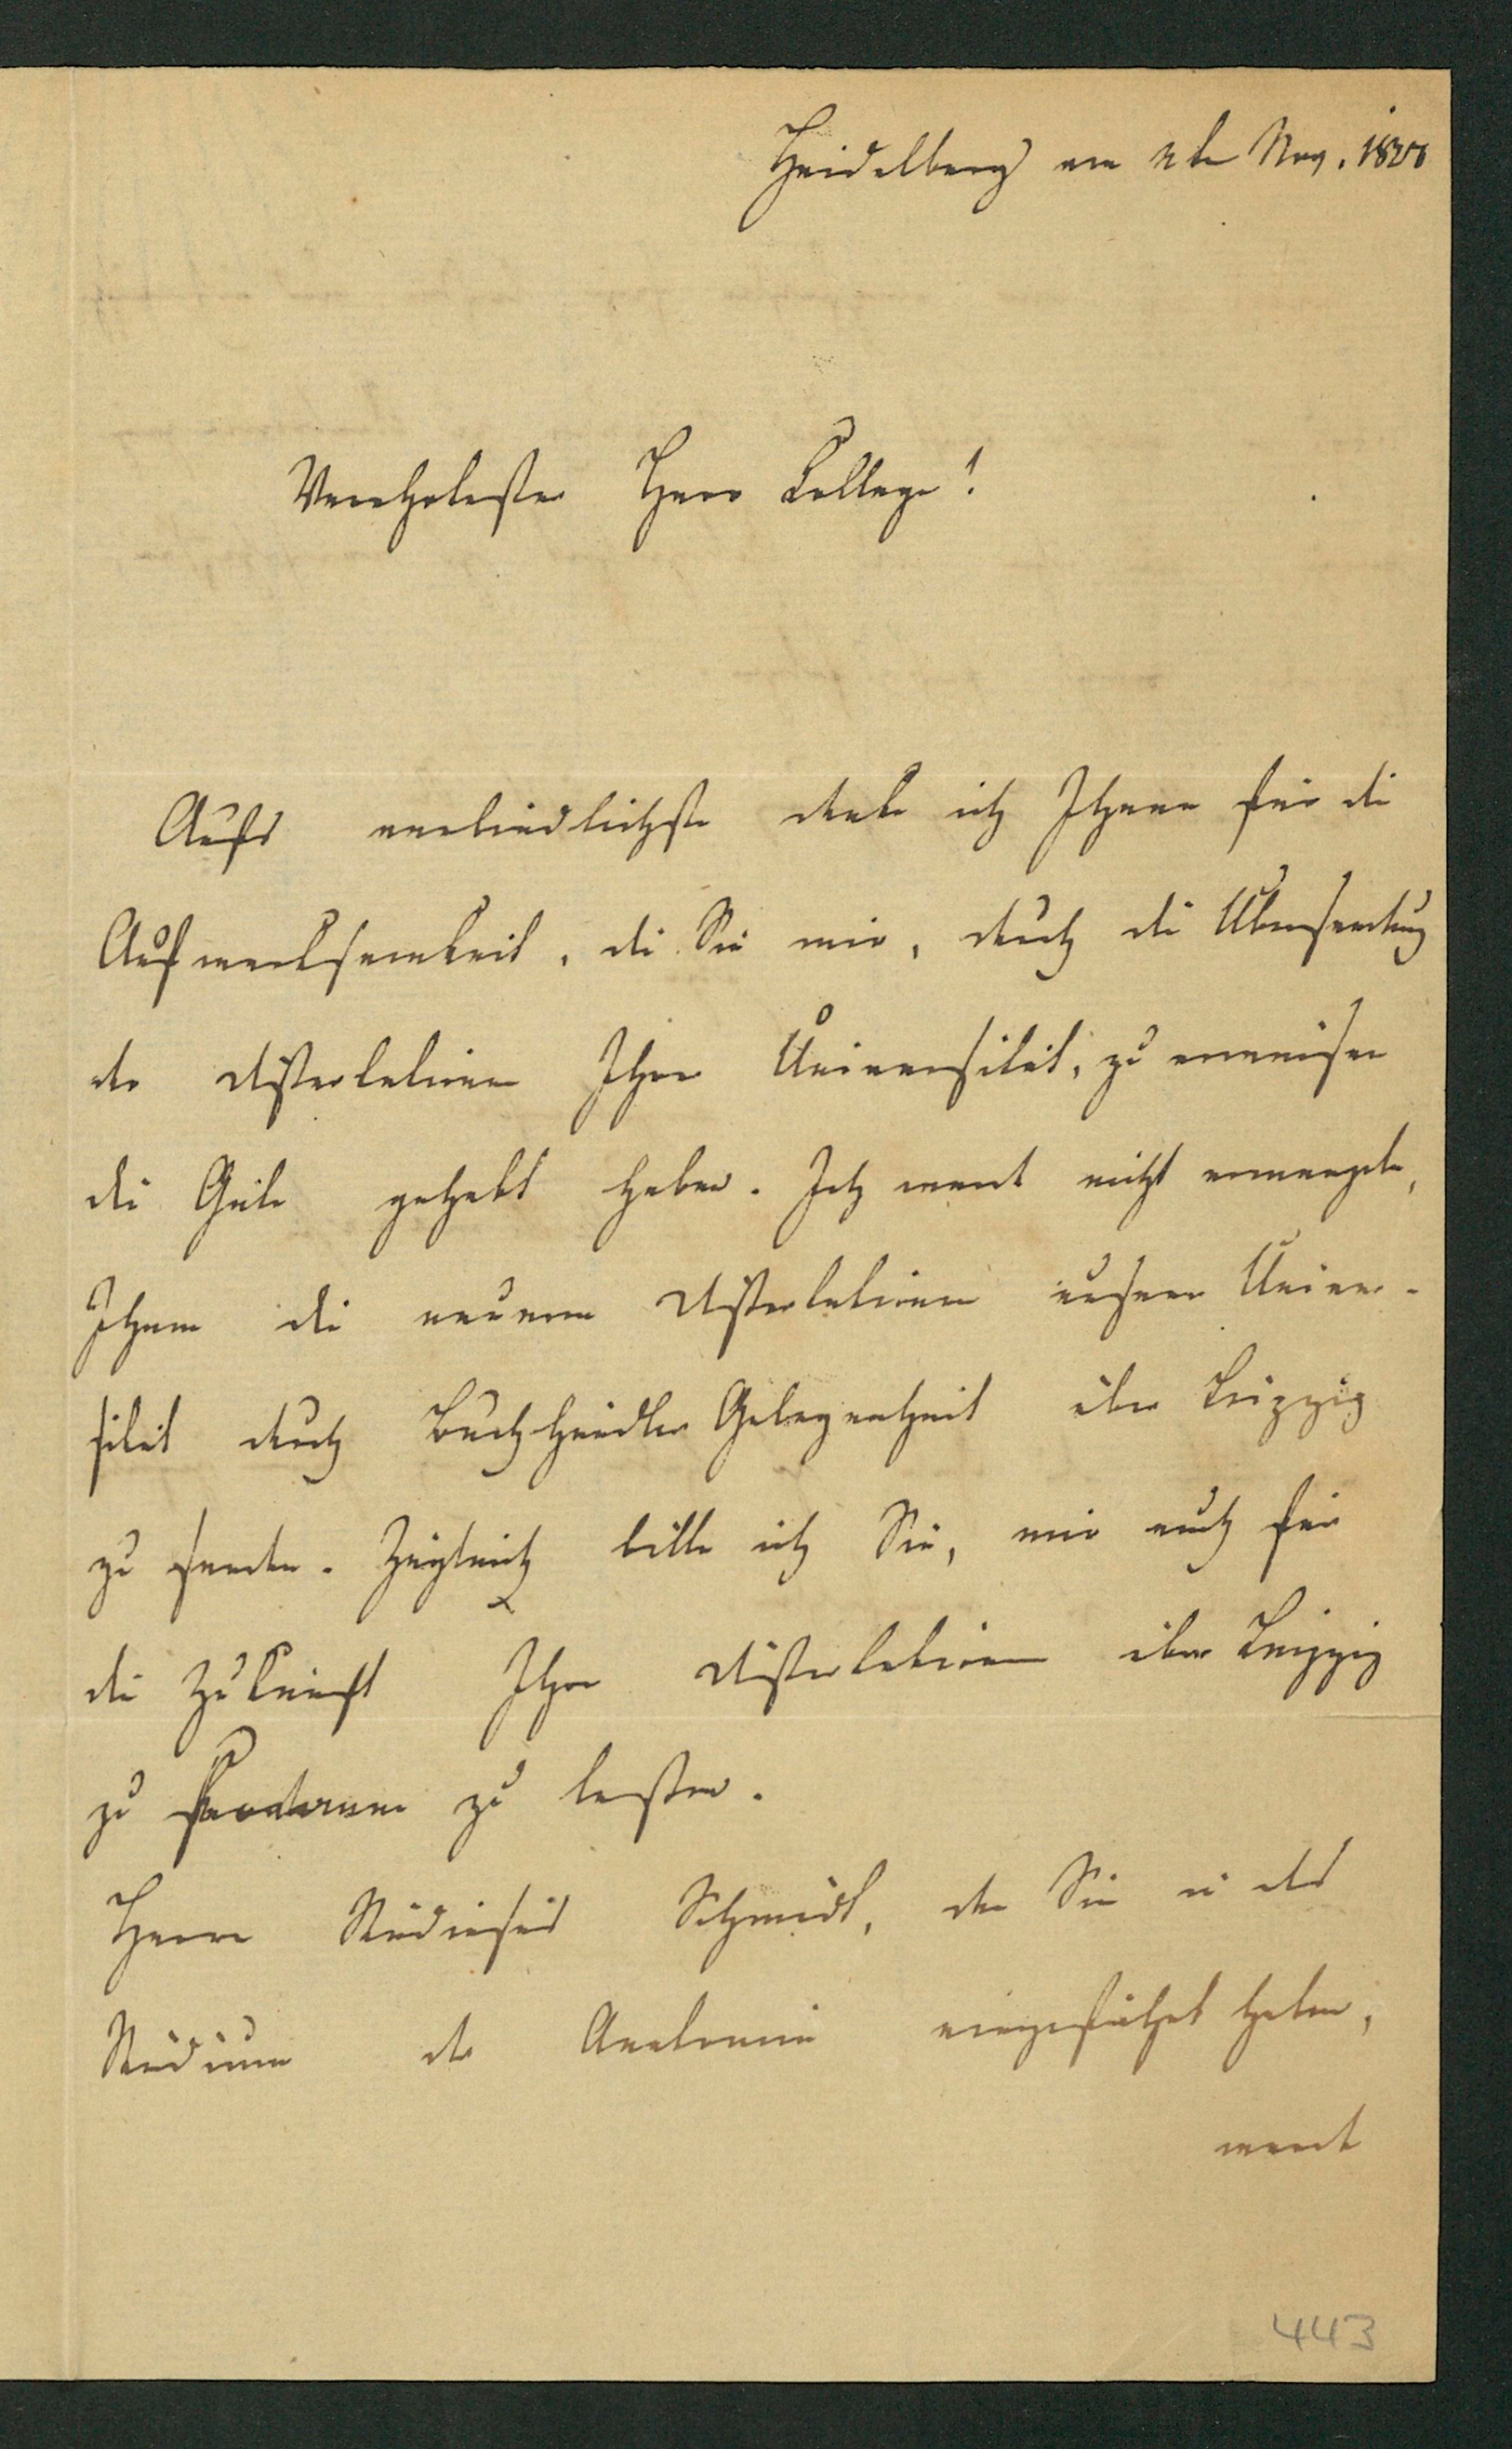 Heidelberg am 2te Nov. 1828
Verehrtester Herr College!
Aufs verbindlichste danke ich Ihnen für die
Aufmerksamkeit, die Sie mir, durch die Übersendung
der Dissertationen Ihrer Universität, zu erweisen
die Güte gehabt haben. Ich werde nicht ermangeln,
Ihnen die neueren Dissertationen unserer Univer-
sität durch Buchhändler Gelegenheit über Leipzig
zu senden. Zugleich bitte ich Sie, mir auch für
die Zukunft Ihre Dissertationen über Leipzig
zu zu lassen.
Herrn Studiosus Schmidt, den Sie in das
Studium der Anatomie eingeführt haben,
werde
443